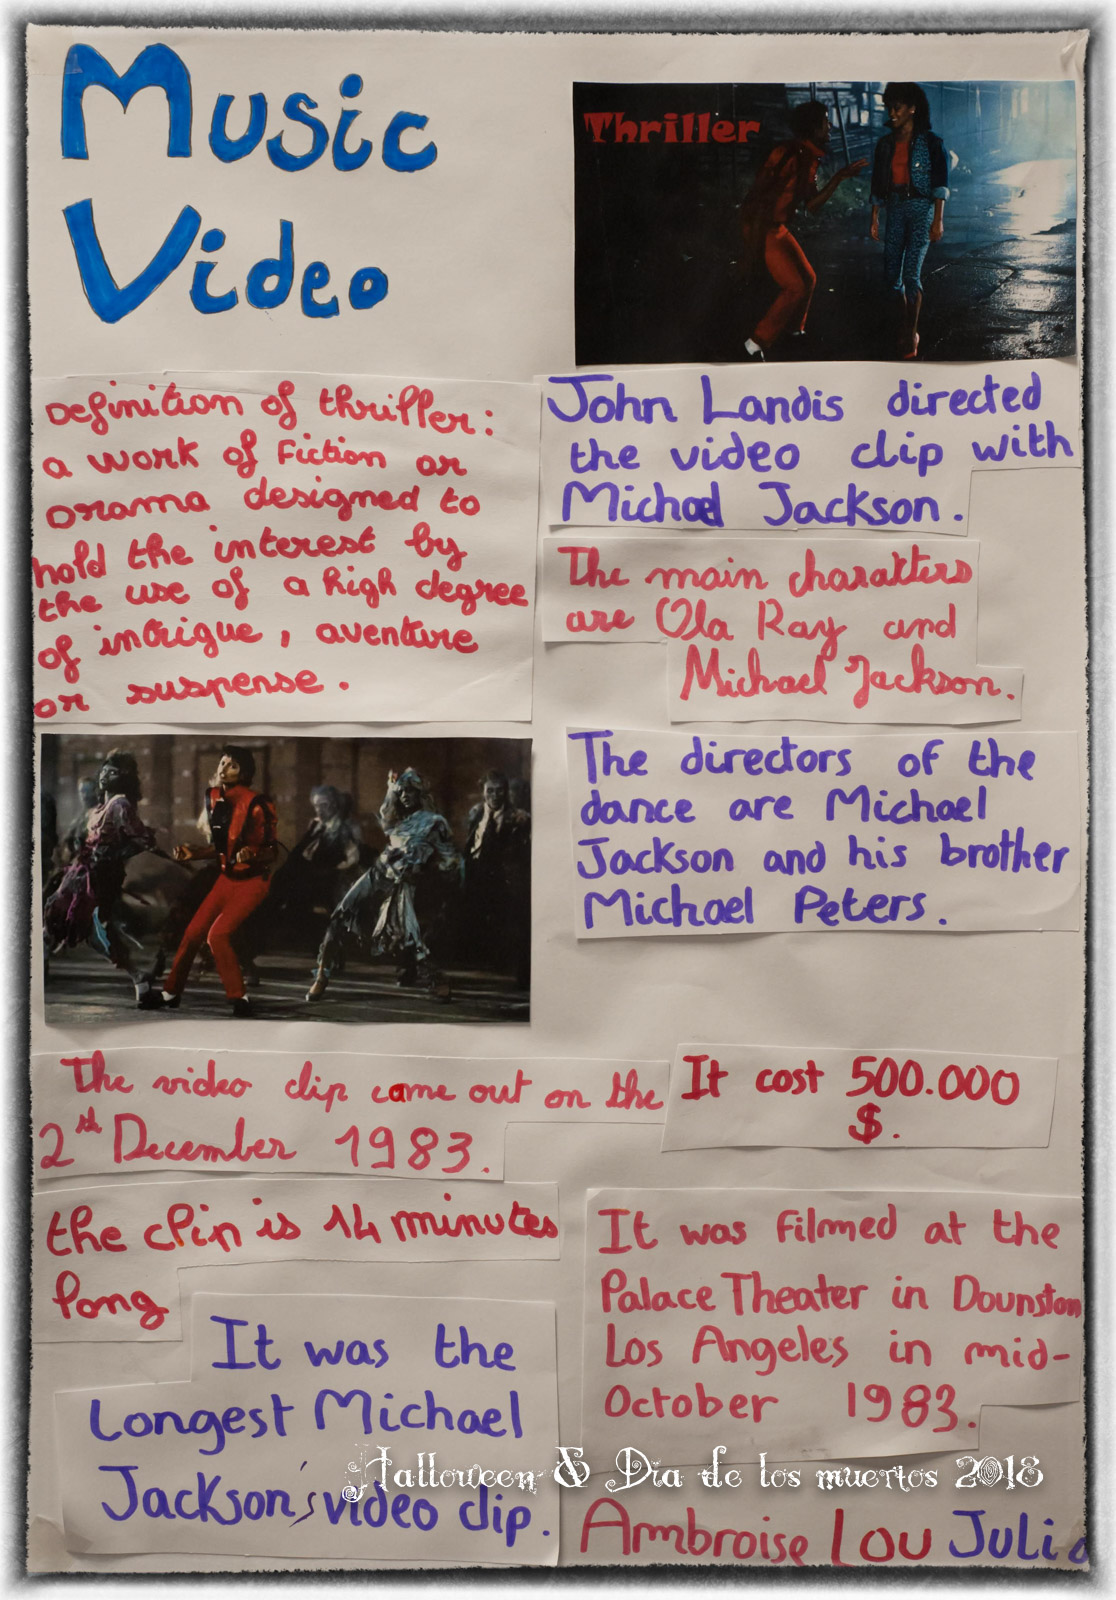 Music
Video
Thriller
Definition of thriller:
a work of fiction or
Drama designed to
hold the interest by
the use of a high degree
of intrigue, aventure
or suspense.
John Landis directed
the video clip with
Michael Jackson.
The main charakters
are Ola Ray and
Michael Jackson.
The directors of the
dance are Michael
Jackson and his brother
Michael Peters.
The video clip came out on the
2th December 1983.
It cost 500.000
$.
the clip is 14 minutes
long
It was the
Longest Michael
Jackson's video clip.
It was filmed at the
Palace Theater in Dounston
Los Angeles in mid-
October 1983.
Halloween & Dia de los muertos 2018
Ambroise Lou Julia